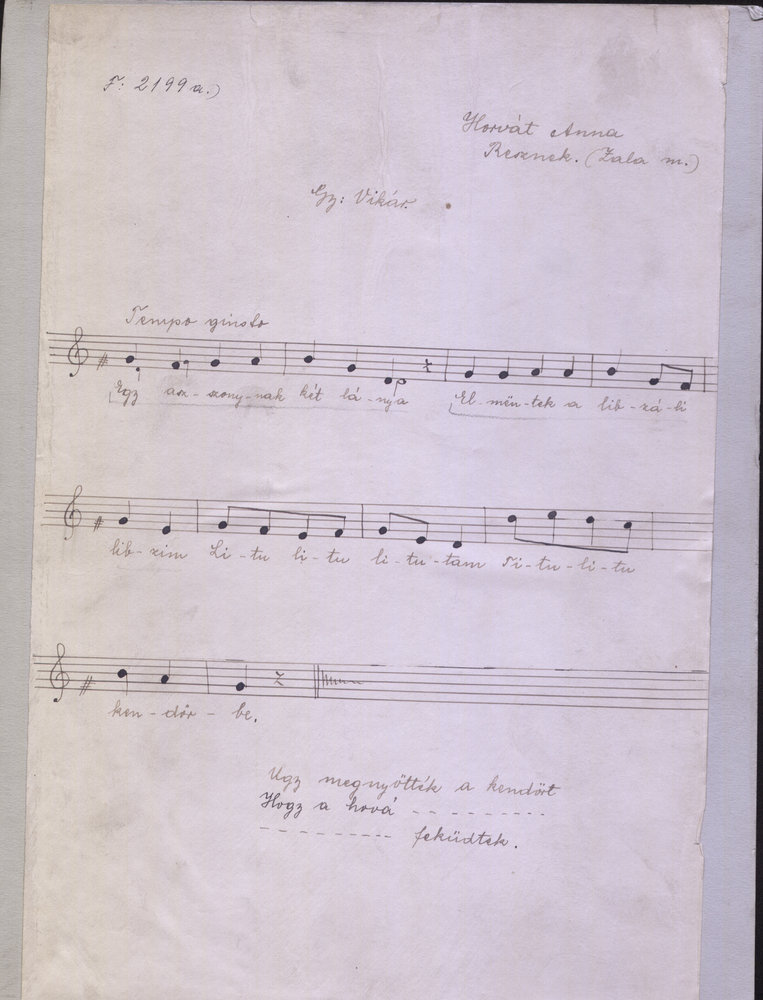 F: 2199 a.)
Horvát Anna
Resznek. (Zala m.)
Gy: Vikár.
Tempo giusto
Egy asz-szony-nak két lá-nya El-mën-tek a lib-zá-li
lib-zim Li-tu li-tu li-tu-tam Ti-tu-li-tu
ken-dör-be.
Ugy megnyőtték a kendört
Hogy a hová - - - - - - - - -
- - - - - - - - - feküdtek.